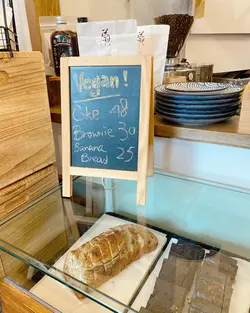 Vegan!
Cke 48
Brownie 30
Banana
Bread 25